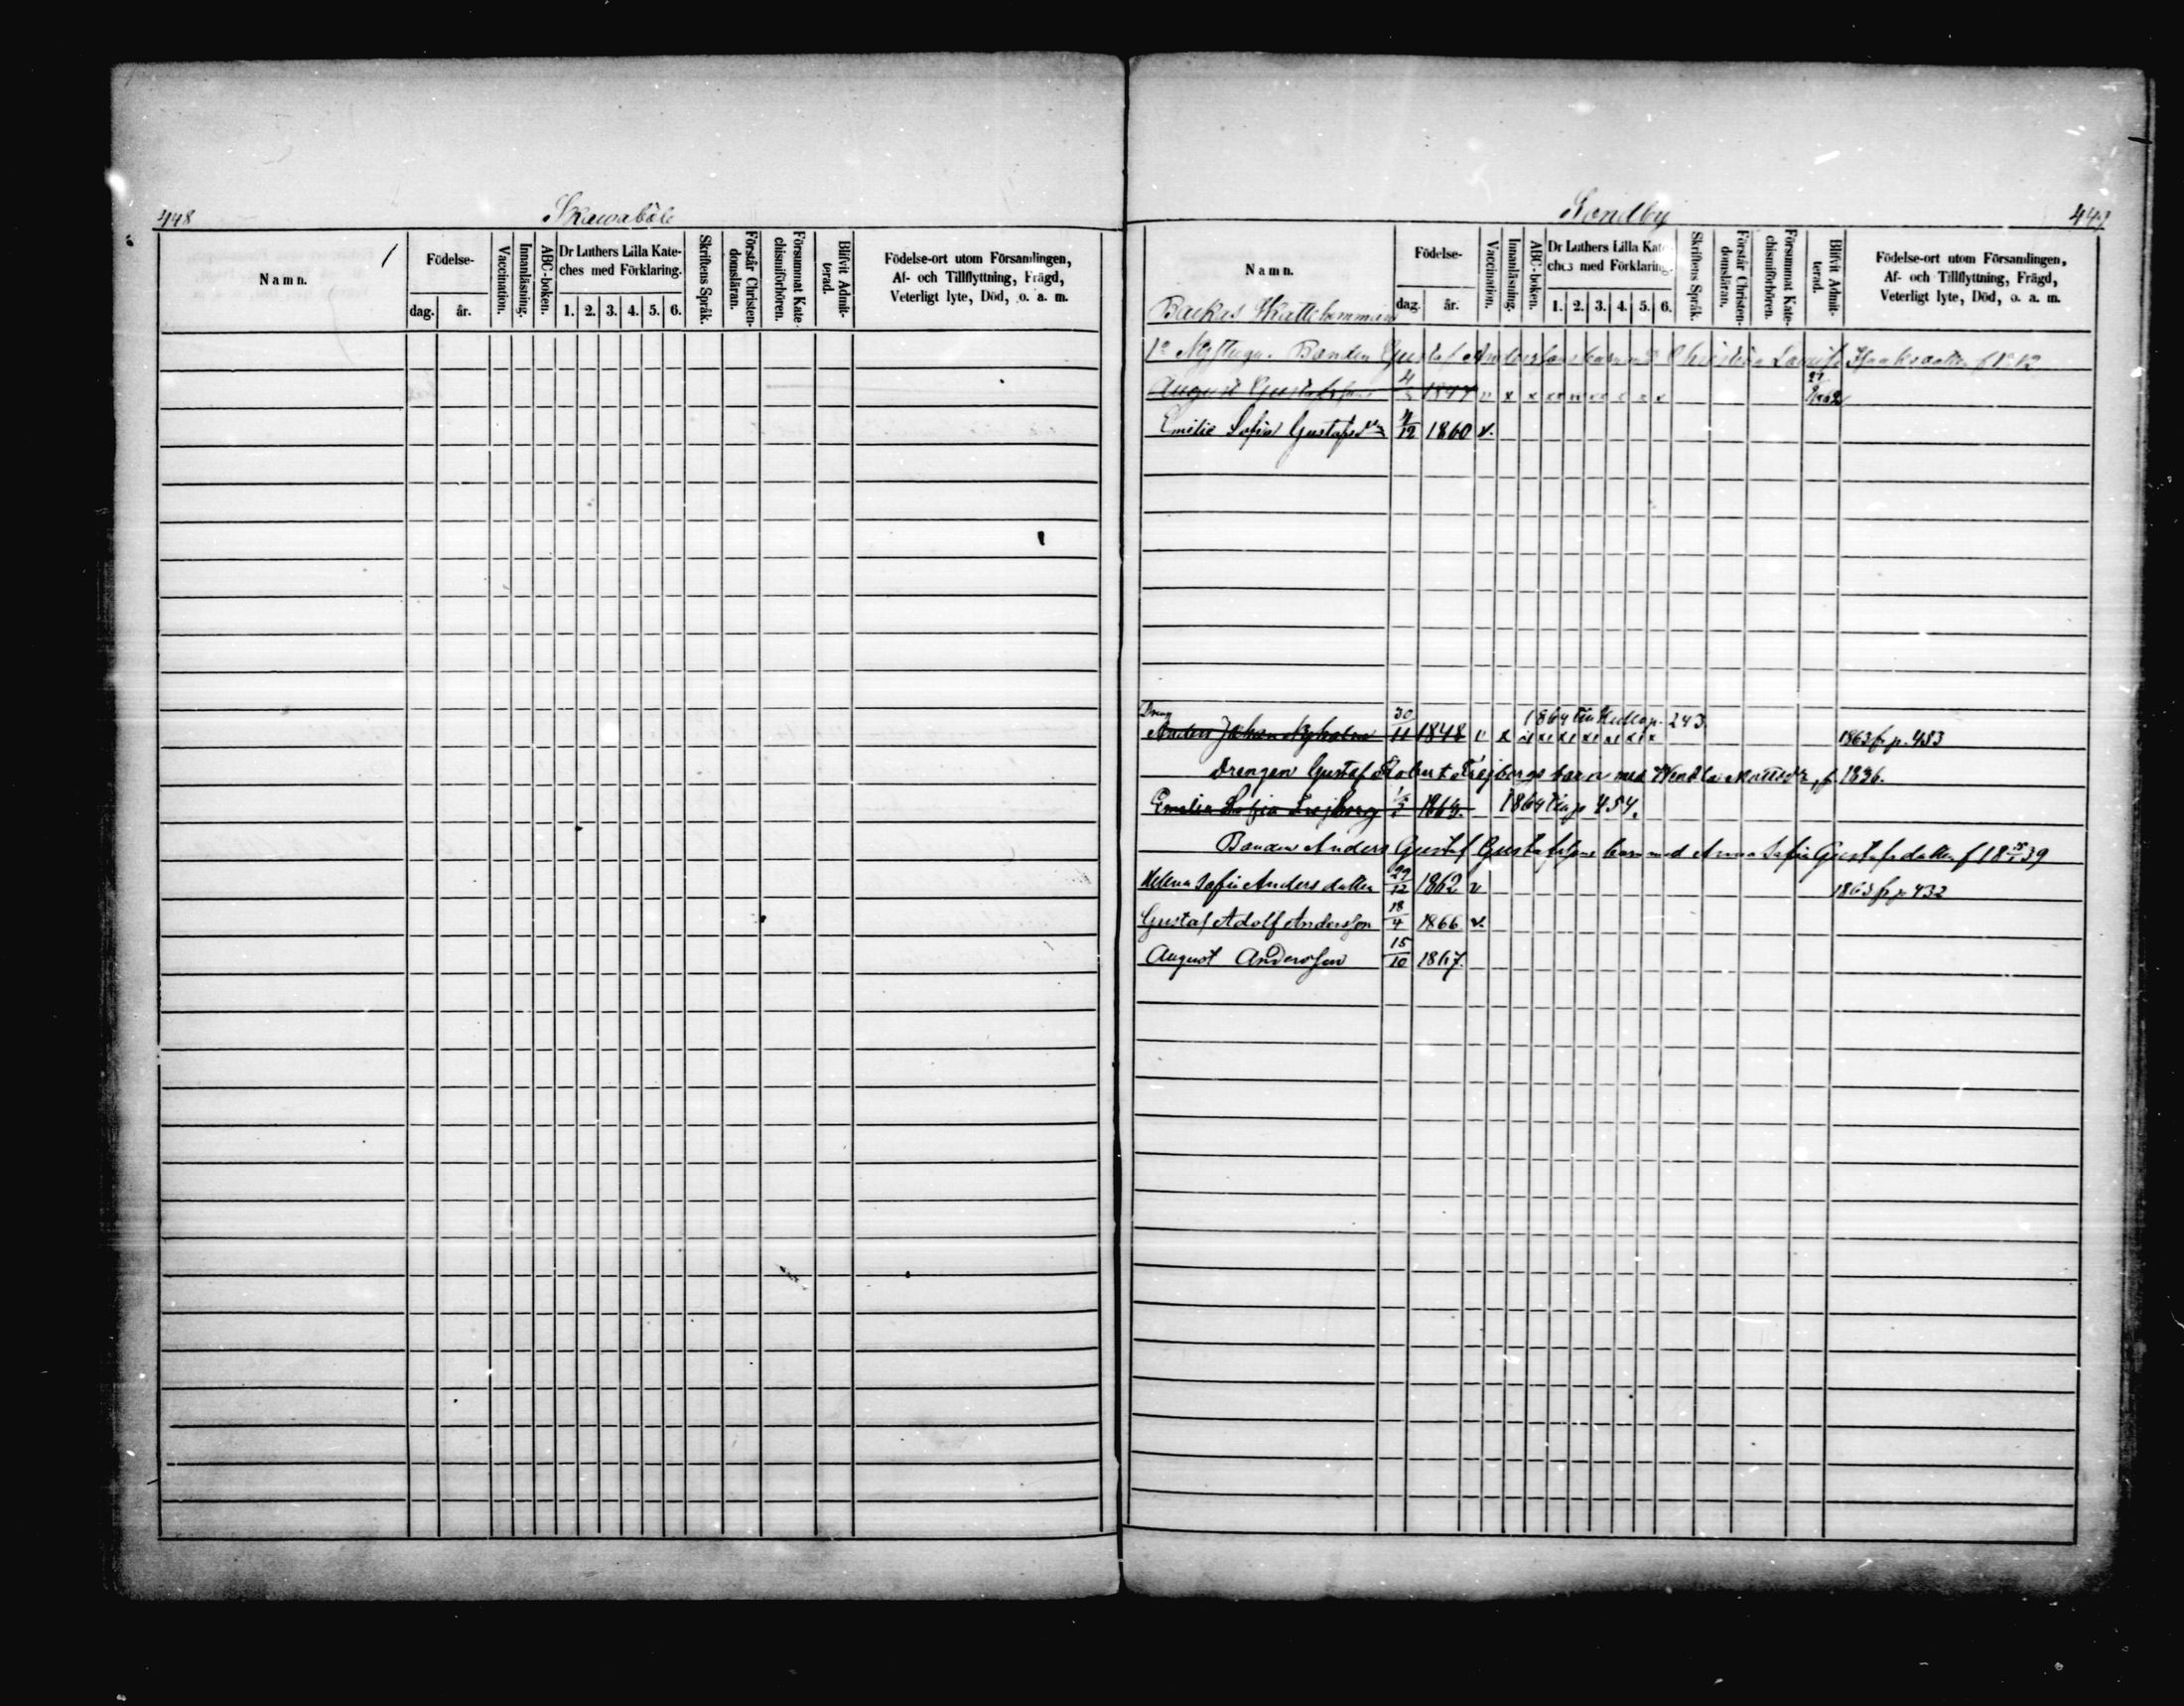 448
Skawaböle
Namn.
Födelse-
dag.
år.
Vaccination.
Innanläsning.
ABC-boken.
Dr Luthers Lilla Kate-
ches med Förklaring.
1. 2. 3. 4. 5. 6.
Skriftens Språk.
Förstår Christen-
domsläran.
Försummat Kate-
chismiförhören.
Blifvit Admit-
terad.
Födelse-ort utom Församlingen,
Af- och Tillflyttning, Frägd,
Veterligt lyte, Död, o. a. m.
Sondby
Namn.
Födelse-
dag.
år.
Vaccination.
Innanläsning.
ABC-boken.
Dr Luthers Lilla Kate-
ches med Förklaring.
1. 2. 3. 4. 5. 6.
Skriftens Språk.
Förstår Christen-
domsläran.
Försummat Kate-
chismiförhören.
Blifvit Admit-
terad.
Födelse-ort utom Församlingen,
Af- och Tillflyttning, Frägd,
Veterligt lyte, Död, o. a. m.
Backas Skattehemman
Bonden Gustaf Anderssons barn Christina
August Gustafsson v x x
Emilie Sofia 12 1860 v.
Dreng
1864 243
Anders Johan Nyholm 30/11 1848 v x 1863 fr p. 483
Drengen Gustaf Robert barn med Wendla f. 1836.
Emilia Sofia 1864 454.
Bonden Anders Gustaf Gustafssons barn med Anna Sofia Gustafsdotter f 18 39
Helena Sofia Andersdotter 29/12 1862 v 1863 fr p 432
Gustaf Adolf Andersson 18/4 1866 v.
August Andersson 15/10 1867.